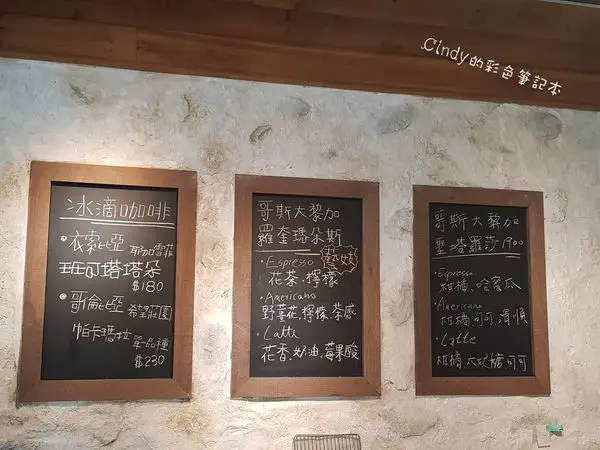 Cindy的彩色筆記本
冰滴咖啡
衣索比亞 耶加雪菲
班可塔塔朵
$180
哥倫比亞 希望莊園
帕卡瑪拉 單一品種
$230
哥斯大黎加
羅奎瑪朵斯
蜜妓
Espresso
花茶.檸檬
Americano
野薑花.檸檬.茶感
Latte
花香.奶油.莓果酸
哥斯大黎加
聖塔羅莎1900
Espresso
柑橘.哈蜜瓜
Americano
柑橘.可可.滑順
Latte
柑橘.太妃糖.可可